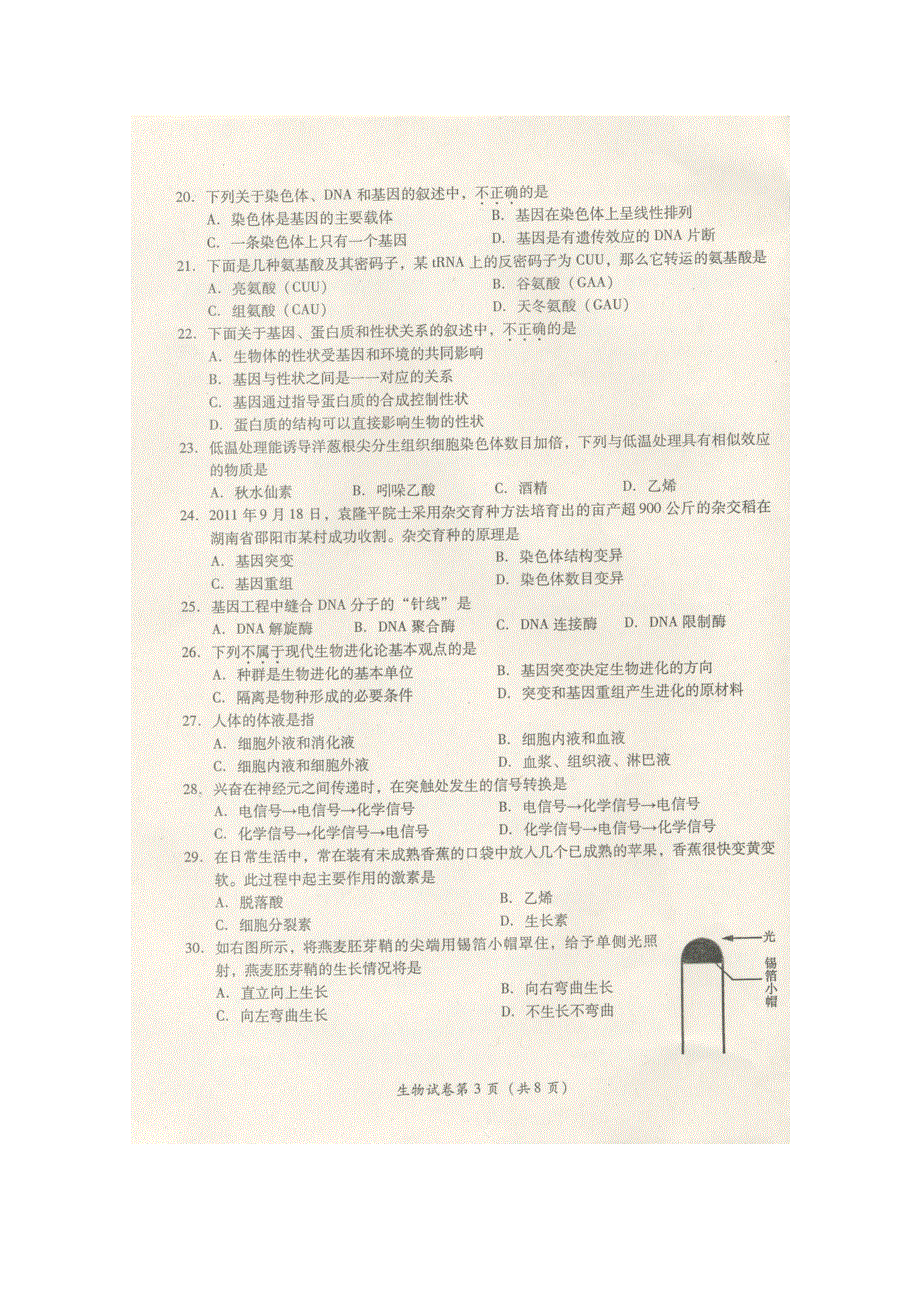 20．下列关于染色体、DNA 和基因的叙述中，不正确的是
A．染色体是基因的主要载体 B．基因在染色体上呈线性排列
C．一条染色体上只有一个基因 D．基因是有遗传效应的 DNA 片断
21．下面是几种氨基酸及其密码子，某 tRNA 上的反密码子为 CUU，那么它转运的氨基酸是
A．亮氨酸（CUU） B．谷氨酸（GAA）
C．组氨酸（CAU） D．天冬氨酸（GAU）
22．下面关于基因、蛋白质和性状关系的叙述中，不正确的是
A．生物体的性状受基因和环境的共同影响
B．基因与性状之间是一一对应的关系
C．基因通过指导蛋白质的合成控制性状
D．蛋白质的结构可以直接影响生物的性状
23．低温处理能诱导洋葱根尖分生组织细胞染色体数目加倍，下列与低温处理具有相似效应
的物质是
A．秋水仙素 B．吲哚乙酸 C．酒精 D．乙烯
24．2011 年 9 月 18 日，袁隆平院士采用杂交育种方法培育出的亩产超 900 公斤的杂交稻在
湖南省邵阳市某村成功收割。杂交育种的原理是
A．基因突变 B．染色体结构变异
C．基因重组 D．染色体数目变异
25．基因工程中缝合 DNA 分子的“针线”是
A．DNA 解旋酶 B．DNA 聚合酶 C．DNA 连接酶 D．DNA 限制酶
26．下列不属于现代生物进化论基本观点的是
A．种群是生物进化的基本单位 B．基因突变决定生物进化的方向
C．隔离是物种形成的必要条件 D．突变和基因重组产生进化的原材料
27．人体的体液是指
A．细胞外液和消化液 B．细胞内液和血液
C．细胞内液和细胞外液 D．血浆、组织液、淋巴液
28．兴奋在神经元之间传递时，在突触处发生的信号转换是
A．电信号→电信号→化学信号 B．电信号→化学信号→电信号
C．化学信号→化学信号→电信号 D．化学信号→电信号→化学信号
29．在日常生活中，常在装有未成熟香蕉的口袋中放入几个已成熟的苹果，香蕉很快变黄变
软。此过程中起主要作用的激素是
A．脱落酸 B．乙烯
C．细胞分裂素 D．生长素
30．如右图所示，将燕麦胚芽鞘的尖端用锡箔小帽罩住，给予单侧光照
射，燕麦胚芽鞘的生长情况将是
A．直立向上生长 B．向右弯曲生长
C．向左弯曲生长 D．不生长不弯曲
光
锡箔小帽
生物试卷第 3 页（共 8 页）